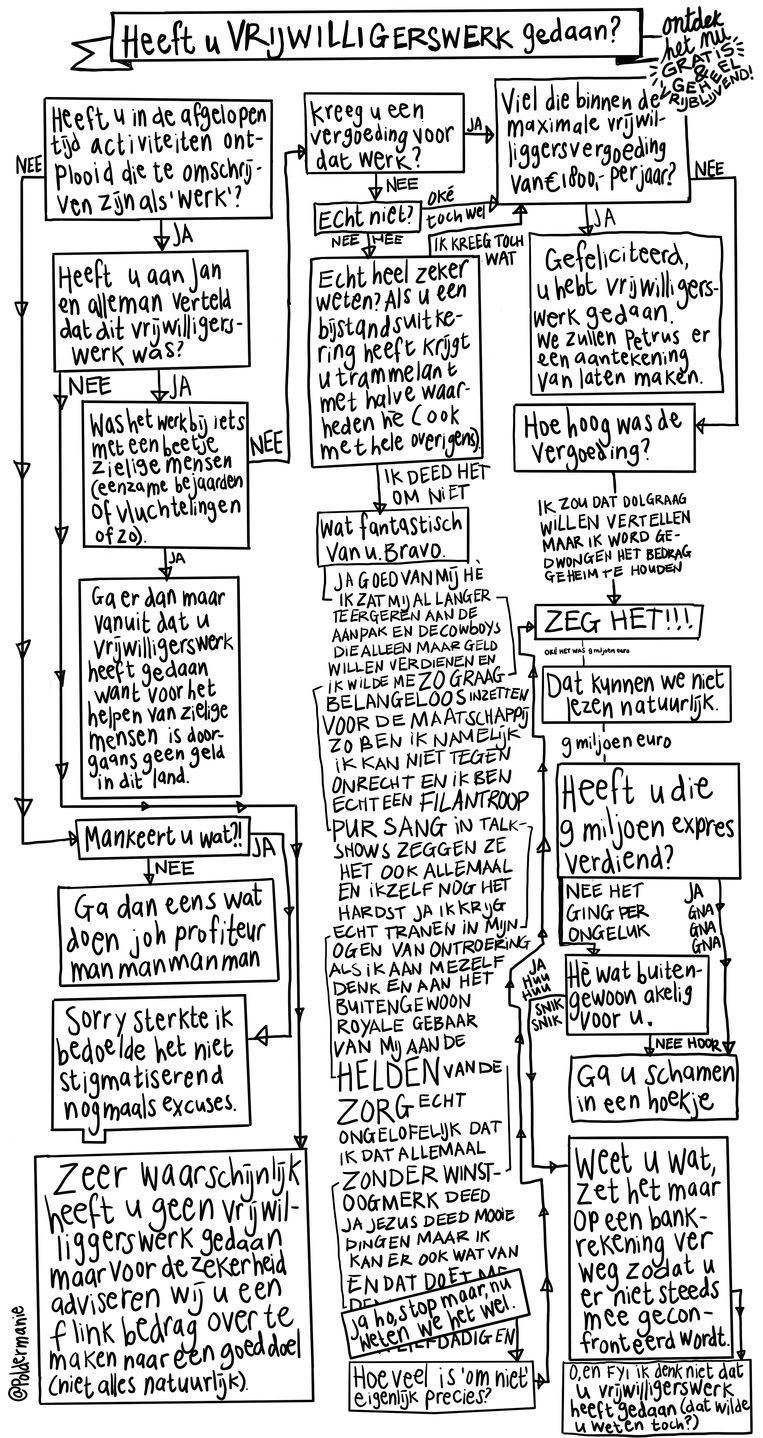 Heeft u VRIJWILLIGERSWERK gedaan?
ontdek
het nu
GRATIS
&
GEHEEL
VRIJBLIJVEND!
Heeft u in de afgelopen
tijd activiteiten ont-
plooid die te omschrij-
ven zijn als 'werk'?
NEE
JA
Heeft u aan Jan
en alleman verteld
dat dit vrijwilligers-
werk was?
NEE
JA
Was het werk bij iets
met een beetje
zielige mensen
(eenzame bejaarden
of vluchtelingen
of zo).
NEE
JA
Ga er dan maar
vanuit dat u
vrijwilligerswerk
heeft gedaan
want voor het
helpen van zielige
mensen is door-
gaans geen geld
in dit land.
Mankeert u wat?!
JA
NEE
Ga dan eens wat
doen joh profiteur
man man man man
Sorry sterkte ik
bedoelde het niet
stigmatiserend
nogmaals excuses.
Zeer waarschijnlijk
heeft u geen vrijwil-
liggerswerk gedaan
maar voor de zekerheid
adviseren wij u een
flink bedrag over te
maken naar een goed doel
(niet alles natuurlijk).
@Poldermanie
Kreeg u een
vergoeding voor
dat werk?
JA
NEE
Echt niet?
OKÉ
toch wel
NEE HEE
IK KREEG TOCH
WAT
Echt heel zeker
weten? Als u een
bijstandsuitke-
ring heeft krijgt
u trammelant
met halve waar-
heden hè (ook
met hele overigens).
IK DEED HET
OM NIET
Wat fantastisch
van u. Bravo.
JA GOED VAN MIJ HÈ
IK ZAT MIJ AL LANGER
TE ERGEREN AAN DE
AANPAK EN DE COWBOYS
DIE ALLEEN MAAR GELD
WILLEN VERDIENEN EN
IK WILDE ME ZO GRAAG
BELANGELOOS INZETTEN
VOOR DE MAATSCHAPPIJ
ZO BEN IK NAMELIJK
IK KAN NIET TEGEN
ONRECHT EN IK BEN
ECHT EEN FILANTROOP
PUR SANG IN TALK-
SHOWS ZEGGEN ZE
HET OOK ALLEMAAL
EN IKZELF NOG HET
HARDST JA IK KRIJG
ECHT TRANEN IN MIJN
OGEN VAN ONTROERING
ALS IK AAN MEZELF
DENK EN AAN HET
BUITENGEWOON
ROYALE GEBAAR
VAN MIJ AAN DE
HELDEN VAN DE
ZORG ECHT
ONGELOFELIJK DAT
IK DAT ALLEMAAL
ZONDER WINST-
OOGMERK DEED
JA JEZUS DEED MOOIE
DINGEN MAAR IK
KAN ER OOK WAT VAN
EN DAT DOET ME
ja ho, stop maar, nu
weten we het wel.
Hoe veel is 'om niet'
eigenlijk precies?
Viel die binnen de
maximale vrijwil-
liggersvergoeding
van € 1800,- per jaar?
NEE
JA
Gefeliciteerd,
u hebt vrijwilligers-
werk gedaan.
We zullen Petrus er
een aantekening
van laten maken.
Hoe hoog was de
vergoeding?
IK ZOU DAT DOLGRAAG
WILLEN VERTELLEN
MAAR IK WORD GE-
DWONGEN HET BEDRAG
GEHEIM TE HOUDEN
ZEG HET!!!
OKÉ HET WAS 9 miljoen euro
Dat kunnen we niet
lezen natuurlijk.
9 miljoen euro
Heeft u die
9 miljoen expres
verdiend?
NEE HET
GING PER
ONGELUK
JA
GNA
GNA
GNA
Hè wat buiten-
gewoon akelig
voor u.
JA
HUU
HUU
SNIK
SNIK
NEE HOOR
Ga u schamen
in een hoekje
Weet u wat,
zet het maar
op een bank-
rekening ver
weg zodat u
er niet steeds
mee gecon-
fronteerd wordt.
O, en FYI ik denk niet dat
u vrijwilligerswerk
heeft gedaan (dat wilde
u weten toch?)